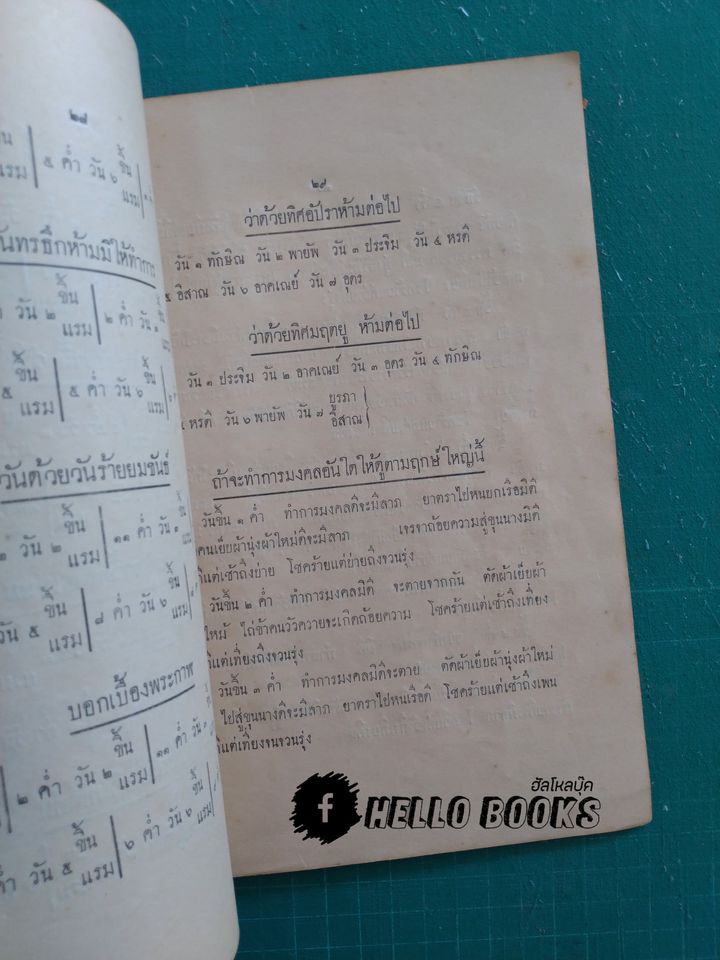 ๒๘
แรม ๕ ค่ำ วัน ๖ ขึ้น แรม
นทรธึกห้ามมิให้ทำการ
วัน ๒ ขึ้น แรม ๒ ค่ำ วัน
ขึ้น แรม ๕ ค่ำ วัน ๖ ขึ้น แรม
วันด้วยวันร้ายยมขันธ์
วัน ๒ ขึ้น แรม ๑๑ ค่ำ วัน
วัน ๕ ขึ้น แรม ๘ ค่ำ วัน ๖ ขึ้น แรม
บอกเบื้องพระกาฬ
๒ ค่ำ วัน ๒ ขึ้น แรม ๑๑ ค่ำ วัน
ค่ำ วัน ๕ ขึ้น แรม ๖ ค่ำ วัน ๖ ขึ้น แรม
๒๙
ว่าด้วยทิศอัปราห้ามต่อไป
วัน ๑ ทักษิณ วัน ๒ พายัพ วัน ๓ ประจิม วัน ๔ หรดี
อิสาณ วัน ๖ อาคเณย์ วัน ๗ อุดร
ว่าด้วยทิศมฤตยู ห้ามต่อไป
วัน ๑ ประจิม วัน ๒ อาคเณย์ วัน ๓ อุดร วัน ๔ ทักษิณ
หรดี วัน ๖ พายัพ วัน ๗ บูรภา อิสาณ
ถ้าจะทำการมงคลอันใดให้ดูตามฤกษ์ใหญ่นี้
วันขึ้น ๑ ค่ำ ทำการมงคลดีจะมีลาภ ยาตราไปหนบกเรือมิดี
คนเย็บผ้านุ่งผ้าใหม่ดีจะมีลาภ เจรจาถ้อยความสู่ขุนนางมิดี
แต่เช้าถึงบ่าย โชคร้ายแต่บ่ายถึงจวนรุ่ง
วันขึ้น ๒ ค่ำ ทำการมงคลมิดี จะตายจากกัน ตัดผ้าเย็บผ้า
ใหม่ ไถ่ข้าคนวัวควายจะเกิดถ้อยความ โชคร้ายแต่เช้าถึงเที่ยง
แต่เที่ยงถึงจวนรุ่ง
วันขึ้น ๓ ค่ำ ทำการมงคลมิดีจะตาย ตัดผ้าเย็บผ้านุ่งผ้าใหม่
ไปสู่ขุนนางดีจะมีลาภ ยาตราไปหนเรือดี โชคร้ายแต่เช้าถึงเพน
แต่เที่ยงจนจวนรุ่ง
ฮัลโหลบุ๊ค
f HELLO BOOKS